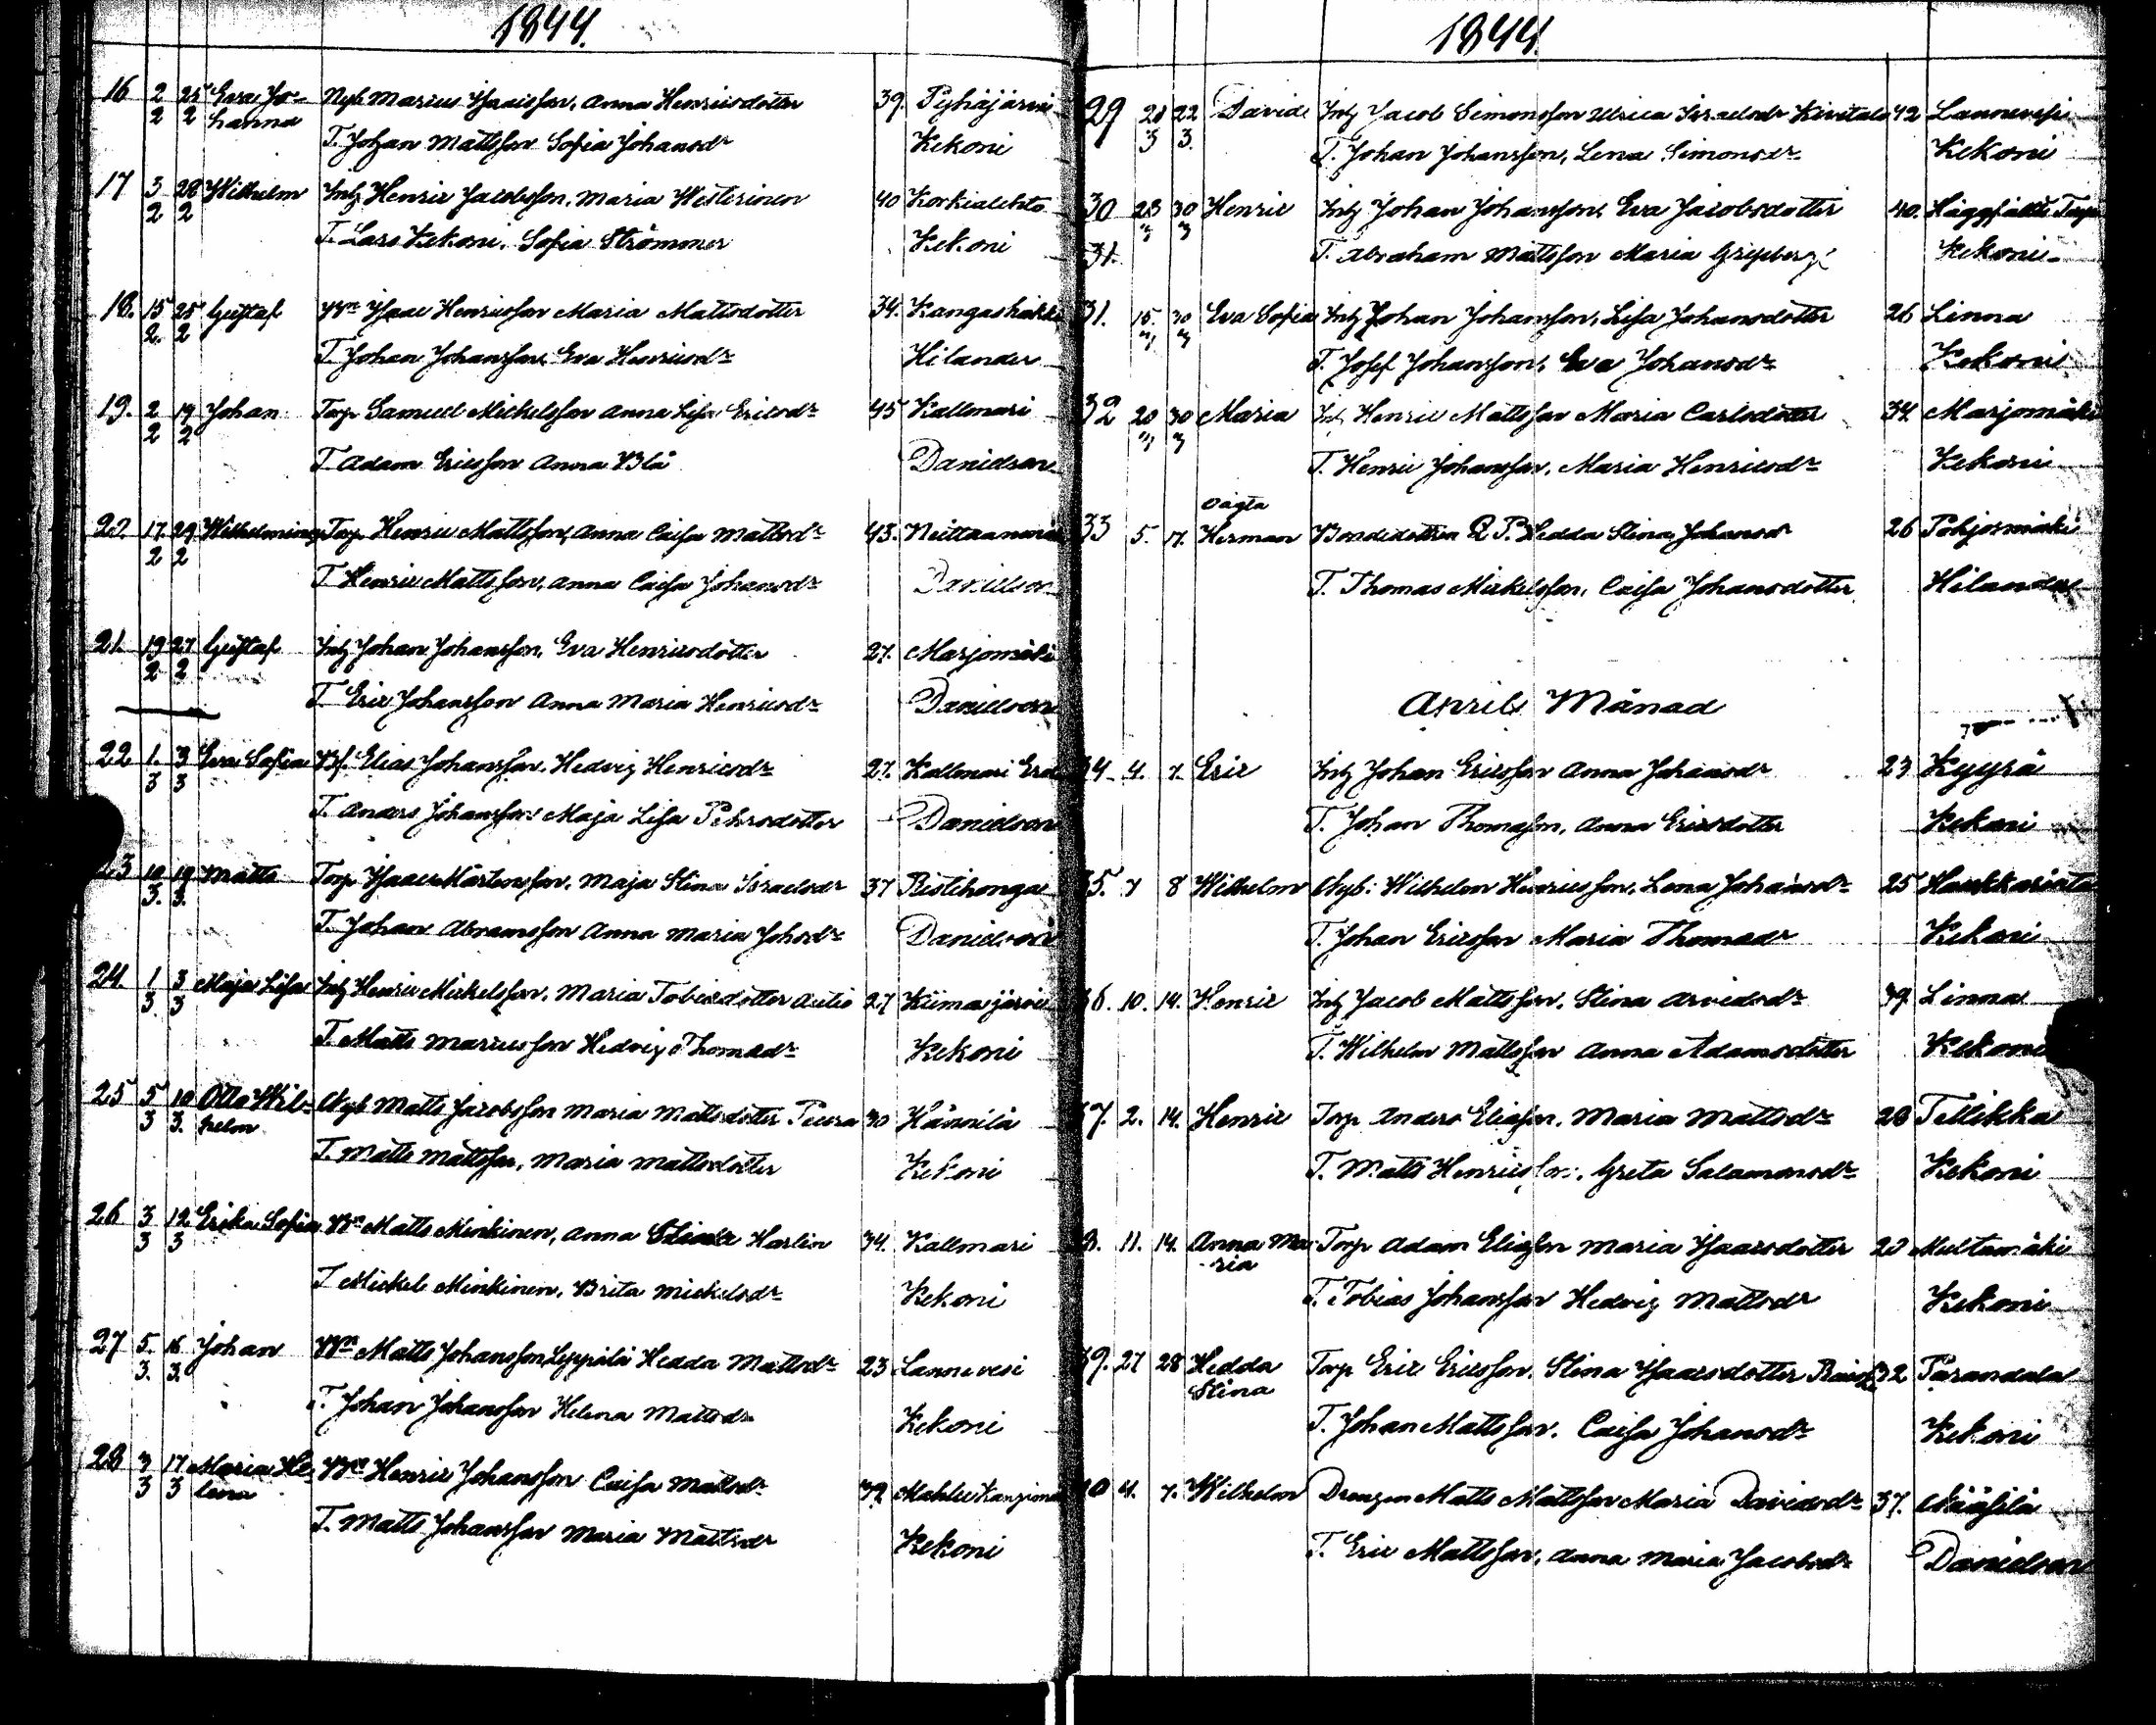 1844.
16 2/2 25/2 Eva Jo- Nyb Marius Isaacsson, Anna Henricsdotter 39. Pyhäjärvi
hanna T. Johan Mattsson Sofia Johansdr Kekoni
17 3/2 28/2 Wilhelm Inh Henric Jacobsson, Maria Westerinen 40 Korkialehto
T. Lars Kekoni, Sofia Strömmer Kekoni
18. 15/2 25/2 Gustaf Bn Isaac Henricsson Maria Mattsdotter 34.
T. Johan Johansson Eva Henricsdr Hilander
19. 2/2 19/2 Johan Torp Samuel Mickelsson Anna Lisa Ericsdr 45 Kallmari
T. Adam Ericsson Anna Blå Danielson
17/2 29/2 Wilhelmina Torp Henric Mattsson, Anna Caisa Mattsdr 43.
T. Henric Mattsson, Anna Caisa Johansdr Danielson
21. 19/2 27/2 Gustaf Inh Johan Johansson, Eva Henricsdotter 27. Marjomäki
T. Eric Johansson Anna Maria Henricsdr Danielson
22 1/3 3/3 Eva Sofia Elias Johansson, Hedvig Henricsdr 27. Kallmari
T. Anders Johansson Maja Lisa Pehrsdotter Danielson
23 10/3 19/3 Matts Torp Isaac Mårtensson, Maja Stina Israelsdr 37 Ristihonga
T. Johan Abramsson Anna Maria Johsdr Danielson
24. 1/3 3/3 Maja Lisa Inh Henric Mickelsson, Maria Tobiasdotter Autio 27 Kiimasjärvi
T. Matts Mariusson Hedvig Thomasdr Kekoni
25 5/3 10/3 Otto Wil- Nyb Matts Jacobsson Maria Mattsdotter 30 Hännilä
helm T. Matts Mattsson, Maria Mattsdotter Kekoni
26 3/3 12/3 Erika Sofia Bn Matts Minkinen, Anna Harlin 34. Kallmari
T. Mickel Minkinen, Brita Mickelsdr Kekoni
27 5/3. 16/3. Johan Bn Matts Johansson Leppälä Hedda Mattsdr 23 Lannevesi
T. Johan Johansson Helena Mattsdr Kekoni
28 3/3 17/3 Maria He- Bn Henric Johansson Caisa Mattsdr 39 Mahlu
lena T. Matts Johansson Maria Mattsdr Kekoni
1844.
29 21/3 22/3. David Inh Jacob Simonsson Ulrica Israelsdr Kivitalo 42 Lannevesi
T. Johan Johansson, Lena Simonsdr Kekoni
30 28/3 30/3 Henric Inh Johan Johansson, Eva Jacobsdotter 40.
31. T. Abraham Mattsson Maria Gripberg Kekoni
31. 15/3 30/3 Eva Sofia Inh Johan Johansson, Lisa Johansdotter 26 Linna
T. Josef Johansson, Eva Johansdr Kekoni
32 20/3 30/3 Maria Inh Henric Mattsson Maria Carlsdotter 34. Marjomäki
T. Henric Johansson, Maria Henricsdr Kekoni
oägta
33 5. 17. Herman Bondedottren Q. P. Hedda Stina Johansdr 26 Pohjosmäki
T. Thomas Mickelsson, Caisa Johansdotter Hilander
April Månad
34 4. 7. Eric Inh Johan Ericsson Anna Johansdr 23 Kyyrä
T. Johan Thomasson, Anna Ericsdotter Kekoni
35. 7 8 Wilhelm Nyb: Wilhelm Henricsson, Lena Johansdr 25
T. Johan Ericsson Maria Thomasdr Kekoni
36. 10. 14. Henric Inh Jacob Mattsson, Stina Arvidsdr 39 Linna
T. Wilhelm Mattsson Anna Adamsdotter Kekoni
37. 2. 14. Henric Torp Anders Eliasson, Maria Mattsdr 28 Tellikka
T. Matts Henricsson, Greta Salamonsdr Kekoni
38. 11. 14. Anna Ma- Torp Adam Eliasson Maria Isaacsdotter 20 Multamäki
ria T. Tobias Johansson Hedvig Mattsdr Kekoni
39. 27 28 Hedda Torp Eric Ericsson, Stina Isaacsdotter 32 Parandala
Stina T. Johan Mattsson, Caisa Johansdr Kekoni
40 4. 7. Wilhelm Drengen Matts Mattsson Maria Davidsdr 37.
T. Eric Mattsson, Anna Maria Jacobsdr Danielson